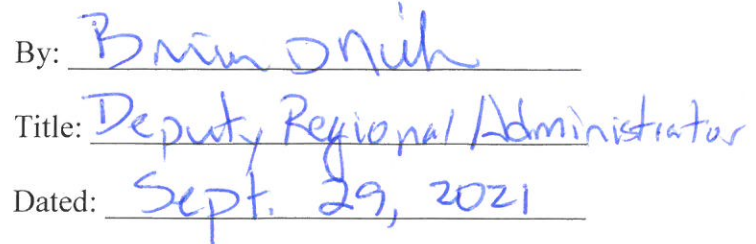 By: Brian
Title: Deputy Regional Administrator
Dated: Sept. 29, 2021